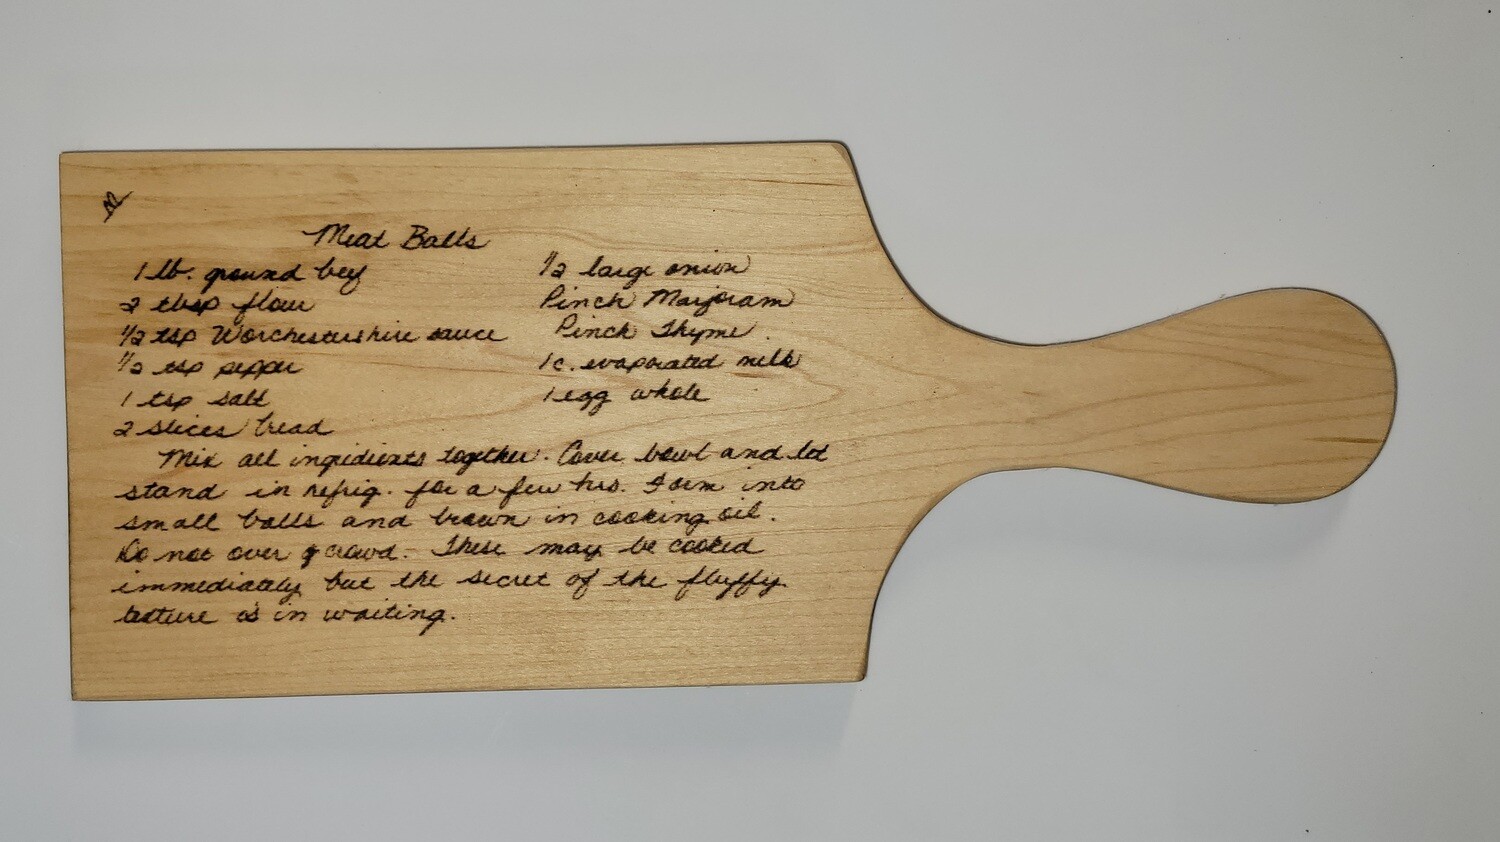 Meat Balls
1 lb. ground beef
2 tbsp flour
1/2 tsp Worchestershire sauce
1/2 tsp pepper
1 tsp salt
2 slices bread
1/2 large onion
Pinch Marjoram
Pinch Thyme
1 c. evaporated milk
1 egg whole
Mix all ingidients together. Cover bowl and let
stand in refrig. for a few hrs. Form into
small balls and brown in cooking oil.
Do not over crowd. These may be cooked
immediately but the secret of the fluffy
texture is in waiting.